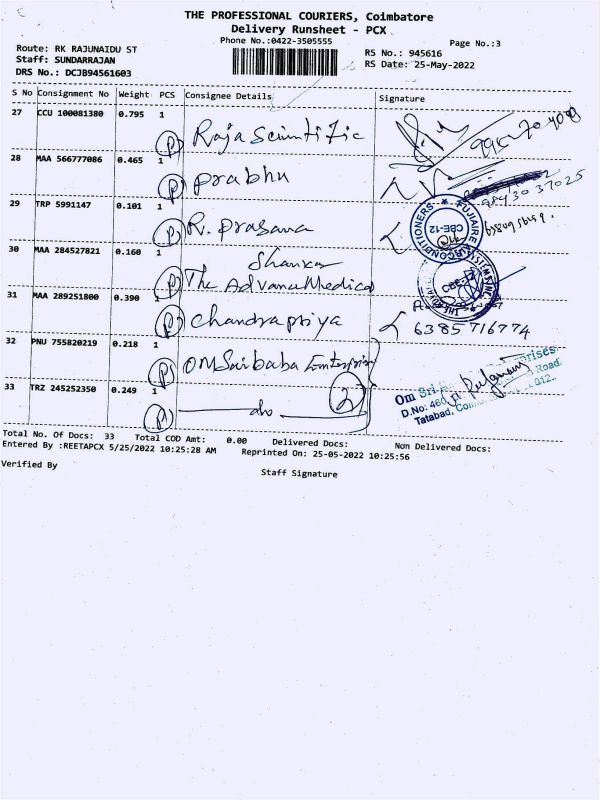 THE PROFESSIONAL COURIERS, Coimbatore
Delivery Runsheet - PCX
Phone No.:0422-3505555
Page No.:3
Route: RK RAJUNAIDU ST
RS No.: 945616
Staff: SUNDARRAJAN
RS Date: 25-May-2022
DRS No.: DCJB94561603
S No Consignment No Weight PCS Consignee Details Signature
27 CCU 100081380 0.795 1
P Raja Scientific
28 MAA 566777086 0.465 1
P Prabhu
29 TRP 5991147 0.101 1
P R. Prasana
30 MAA 284527821 0.160 1
Shankar
P The Advance Medical
31 MAA 289251800 0.390 1
P Chandrapriya
6385716774
32 PNU 755820219 0.218 1
P OM Saibaba Enterprises
2
33 TRZ 245252350 0.249 1
P do
FUJIAIRE AIRCONDITIONERS
CBE-12
CBE-12
Om Sri
D.No: 460,
Road
Tatabad,
012.
Total No. Of Docs: 33 Total COD Amt: 0.00 Delivered Docs: Non Delivered Docs:
Entered By :REETAPCX 5/25/2022 10:25:28 AM Reprinted On: 25-05-2022 10:25:56
Verified By
Staff Signature